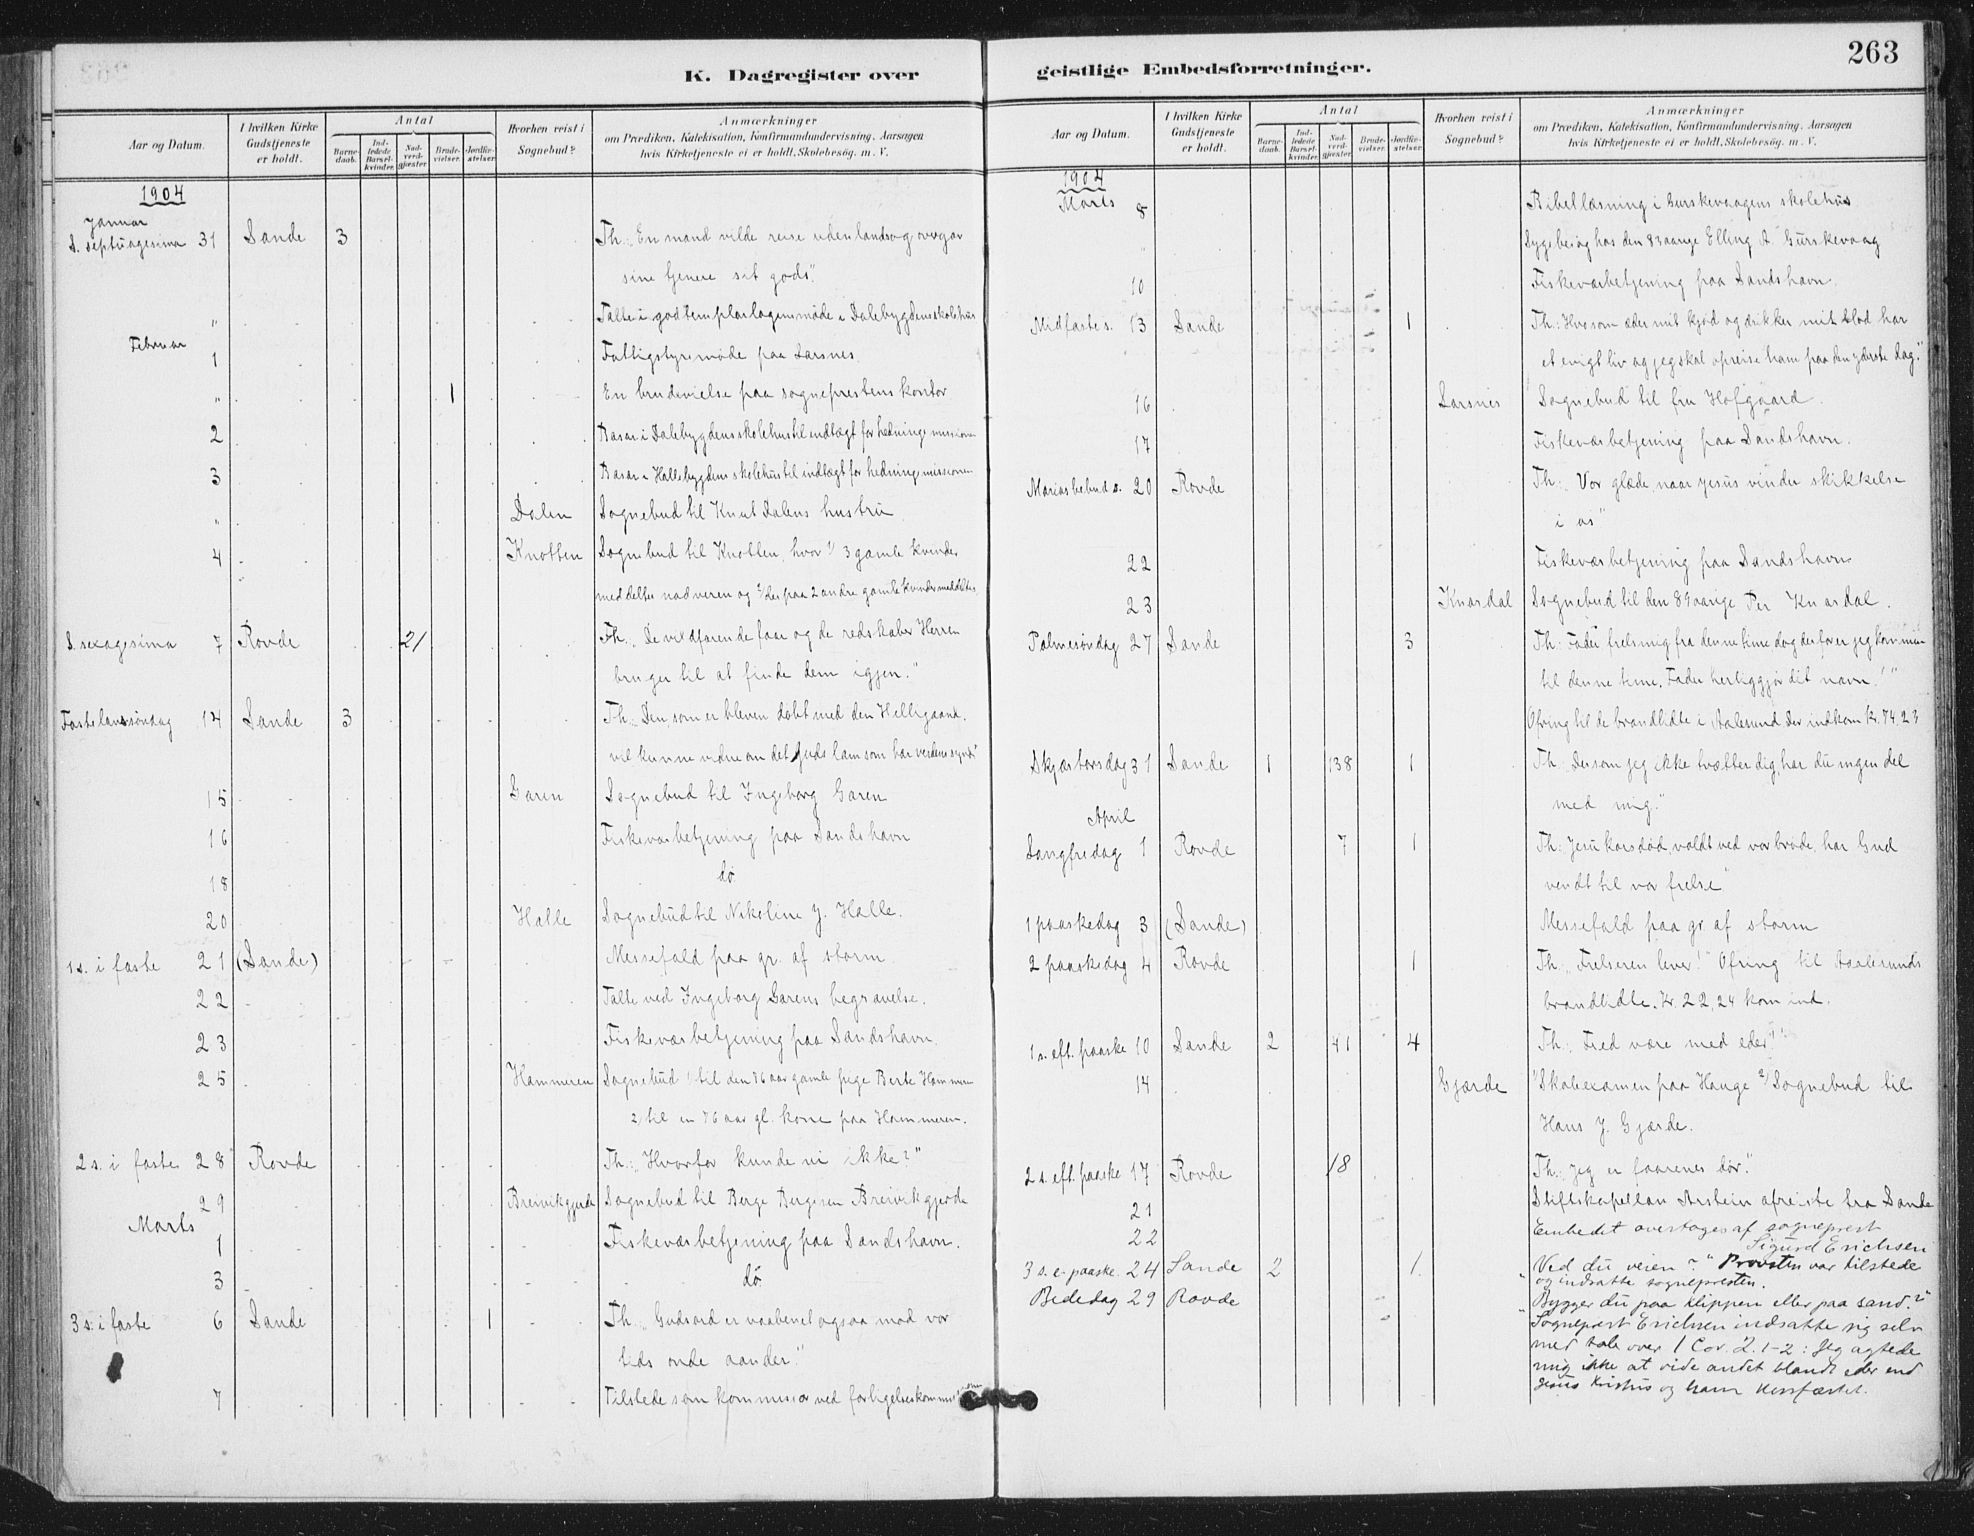 263
K. Dagregister over
geistlige Embedsforretninger.
Aar og Datum.
I hvilken Kirke Gudstjeneste er holdt.
Antal
Barnedaab.
Indledede Barselkvinder.
Nadverdgjester.
Brudevielser.
Jordfæstelser.
Hvorhen reist i Sognebud?
Anmærkninger
om Prædiken, Katekisation, Konfirmandundervisning, Aarsagen
hvis Kirketjeneste ei er holdt, Skolebesøg. m. V.
1904
Januar
S. septuagesima 31 Sande 3 Th: "En mand vilde reise udenlands og overgav
sine tjenere sit gods".
" Talte i godtemplarlogens møde i Dalebygdens skolehus
Februar
1 Fattigstyremøde paa Larsnes.
" 1 En brudevielse paa sogneprestens kontor
2 Basar i Dalebygdens skolehus til indtægt for hedningemissionen
3 Basar i Hallebygdens skolehus til indtægt for hedningemissionen
" Dalen Sognebud til Knut Dalens hustru
4 Knotten Sognebud til Knotten, hvor 1/ 3 gamle kvinder
meddeltes nadveren og 2/ der paa 2 andre gamle kvinder meddeltes.
S. sexagesima 7 Rovde 21 Th: "De vildfarende faar og de redskaber Herren
bruger til at finde dem igjen."
Fastelavnssøndag 14 Sande 3 Th: "Den, som er bleven døbt med den Helligaand,
vil kunne vidne om det Guds lam som bar verdens synd"
15 Garen Sognebud til Ingeborg Garen
16 Fiskeværbetjening paa Sandshavn
18 do
20 Halle Sognebud til Nikoline J. Halle.
1 s. i faste 21 (Sande) Messefald paa gr. af storm.
22 Talte ved Ingeborg Garens begravelse.
23 Fiskeværbetjening paa Sandshavn.
25 Hammeren Sognebud 1/ til den 76 aar gamle pige Berte Hammeren
2/ til en 76 aar gl. kone paa Hammeren.
2 s. i faste 28 Rovde Th: "Hvorfor kunde vi ikke?"
29 Breivikgjerde Sognebud til Berge Bergesen Breivikgjerde
Marts
1 Fiskeværbetjening paa Sandshavn.
3 do
3 s. i faste 6 Sande 1 Th: "Guds ord er vaabenet ogsaa mod vor
tids onde aander."
7 Tilstede som kommissær ved forligelseskommissionen
Aar og Datum.
I hvilken Kirke Gudstjeneste er holdt.
Antal
Barnedaab.
Indledede Barselkvinder.
Nadverdgjester.
Brudevielser.
Jordfæstelser.
Hvorhen reist i Sognebud?
Anmærkninger
om Prædiken, Katekisation, Konfirmandundervisning, Aarsagen
hvis Kirketjeneste ei er holdt, Skolebesøg. m. V.
1904
Marts 8 Bibellæsning i Gurskevaagens skolehus
" Sygebesøg hos den 83 aarige Elling A. Gurskevaag
10 Fiskeværbetjening paa Sandshavn.
Midfastes. 13 Sande 1 Th: Hvo som æder mit kjød og drikker mit blod har
et evigt liv og jeg skal opreise ham paa den yderste dag."
16 Larsnes Sognebud til fru Hofgaard.
17 Fiskeværbetjening paa Sandshavn.
Marias bebud. s. 20 Rovde Th: "Vor glæde, naar Jesus vinder skikkelse
i os"
22 Fiskeværbetjening paa Sandshavn
23 Knardal Sognebud til den 89 aarige Per Knardal.
Palmesøndag 27 Sande 3 Th: Fader frels mig fra denne time dog derfor er jeg kommen
til denne time. Fader herliggjør dit navn!"
Ofring til de brandlidte i Aalesund der indkom Kr. 74.23
Skjærtorsdag 31 Sande 1 138 1 Th: Dersom jeg ikke tvætter dig, har du ingen del
med mig."
April
Langfredag 1 Rovde 7 1 Th: Jesu korsdød, voldt ved vor brøde, har Gud
vendt til vor frelse"
1 paaskedag 3 (Sande) Messefald paa gr. af storm
2 paaskedag 4 Rovde 1 Th: "Frelseren lever!" Ofring til Aalesunds
brandlidte. Kr. 22,24 kom ind.
1 s. eft. paaske 10 Sande 2 41 4 Th: Fred være med eder!"
14 Gjærde 1/ Skoleexamen paa Hauge 2/ Sognebud til
Hans J. Gjærde.
2 s. eft. paaske 17 Rovde 18 Th: Jeg er faarenes dør."
21 Stiftskapellan Arstein afreiste fra Sande
22 Embedet overtoges af sogneprest
Sigurd Erichsen
3 s. e. paaske 24 Sande 2 1 "Ved du veien?" Provsten var tilstede
og indsatte sognepresten.
Bededag 29 Rovde "Bygger du paa klippen eller paa sand?"
Sogneprest Erichsen indsatte sig selv
med tale over 1 Cor. 2. 1-2: Jeg agtede
mig ikke at vide andet blandt eder end
Jesus Kristus og ham korsfæstet.